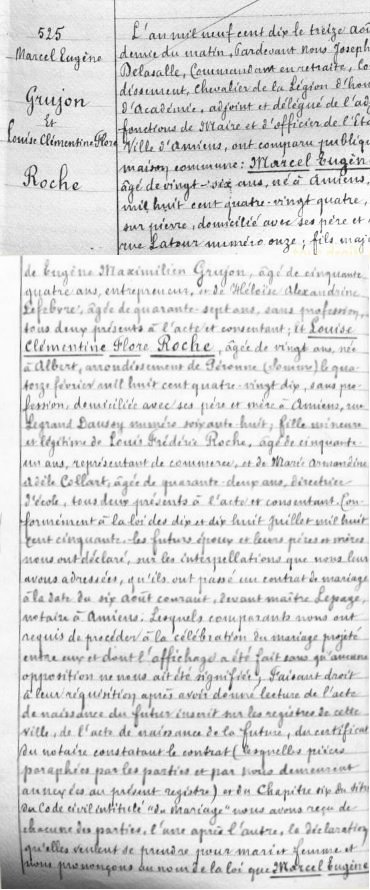 525
Marcel Eugène
Grujon
Et
Louise Clémentine Flore
Roche
L'an mil neuf cent dix le treize Aoû
demie du matin, Pardevant Nous Joseph
Delasalle, Commandant en retraite, Co
dissement, Chevalier de la Légion d'hon
d'Académie, adjoint et délégué de l'ad
fonctions de Maire et d'officier de l'Eta
Ville d'Amiens, ont comparu publique
maison commune: Marcel Eugèn
âgé de vingt-six ans, né à Amiens,
mil huit cent quatre-vingt quatre,
sur pierre, domicilié avec ses père et
rue Latour numéro onze; fils maj
de Eugène Maximilien Grujon, âgé de cinquante
quatre ans, entrepreneur, et de Héloïse Alexandrine
Lefebvre, âgée de quarante-sept ans, sans profession,
tous deux présents à l'acte et consentant; Et Louise
Clémentine Flore Roche, âgée de vingt ans, née
à Albert, arrondissement de Péronne (Somme) le qua-
torze février mil huit cent quatre-vingt dix, sans pro-
fession, domiciliée avec ses père et mère à Amiens, rue
Legrand Daussy numéro soixante huit; fille mineure
et légitime de Louis Frédéric Roche, âgé de cinquante
un ans, représentant de commerce, et de Marie Armandine
Adèle Collart, âgée de quarante-deux ans, directrice
d'école, tous deux présents à l'acte et consentant. Con-
formément à la loi des dix et dix huit Juillet mil huit
cent cinquante, les futurs époux et leurs pères et mères
nous ont déclaré, sur les interpellations que nous leur
avons adressées, qu'ils ont passé un contrat de mariage
à la date du six Août courant, devant maître Lepage,
notaire à Amiens. Lesquels comparants nous ont
requis de procéder à la célébration du mariage projeté
entre eux et dont l'affichage a été fait sans qu'aucune
opposition ne nous ait été signifiée. Faisant droit
à leur réquisition après avoir donné lecture de l'acte
de naissance du futur inscrit sur les registres de cette
ville, de l'acte de naissance de la future, du certificat
du notaire constatant le contrat (lesquelles pièces
paraphées par les parties et par nous demeurent
annexées au présent registre) et du Chapitre six du titre
du Code civil intitulé "du Mariage" nous avons reçu de
chacune des parties, l'une après l'autre, la déclaration
qu'elles veulent se prendre pour mari et femme et
nous prononçons au nom de la loi que Marcel Eugène